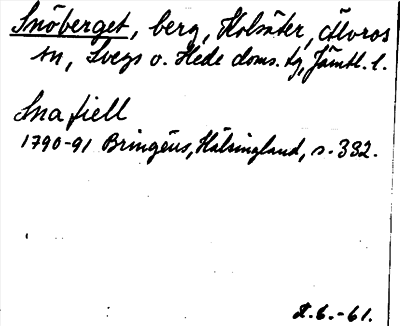 Snöberget, berg, Holsäter, Älvros
sn, Svegs o. Hede doms. tg, Jämtl. l.
Snafiell
1790-91 Bringéus, Hälsingland, s. 332.
6.-61.